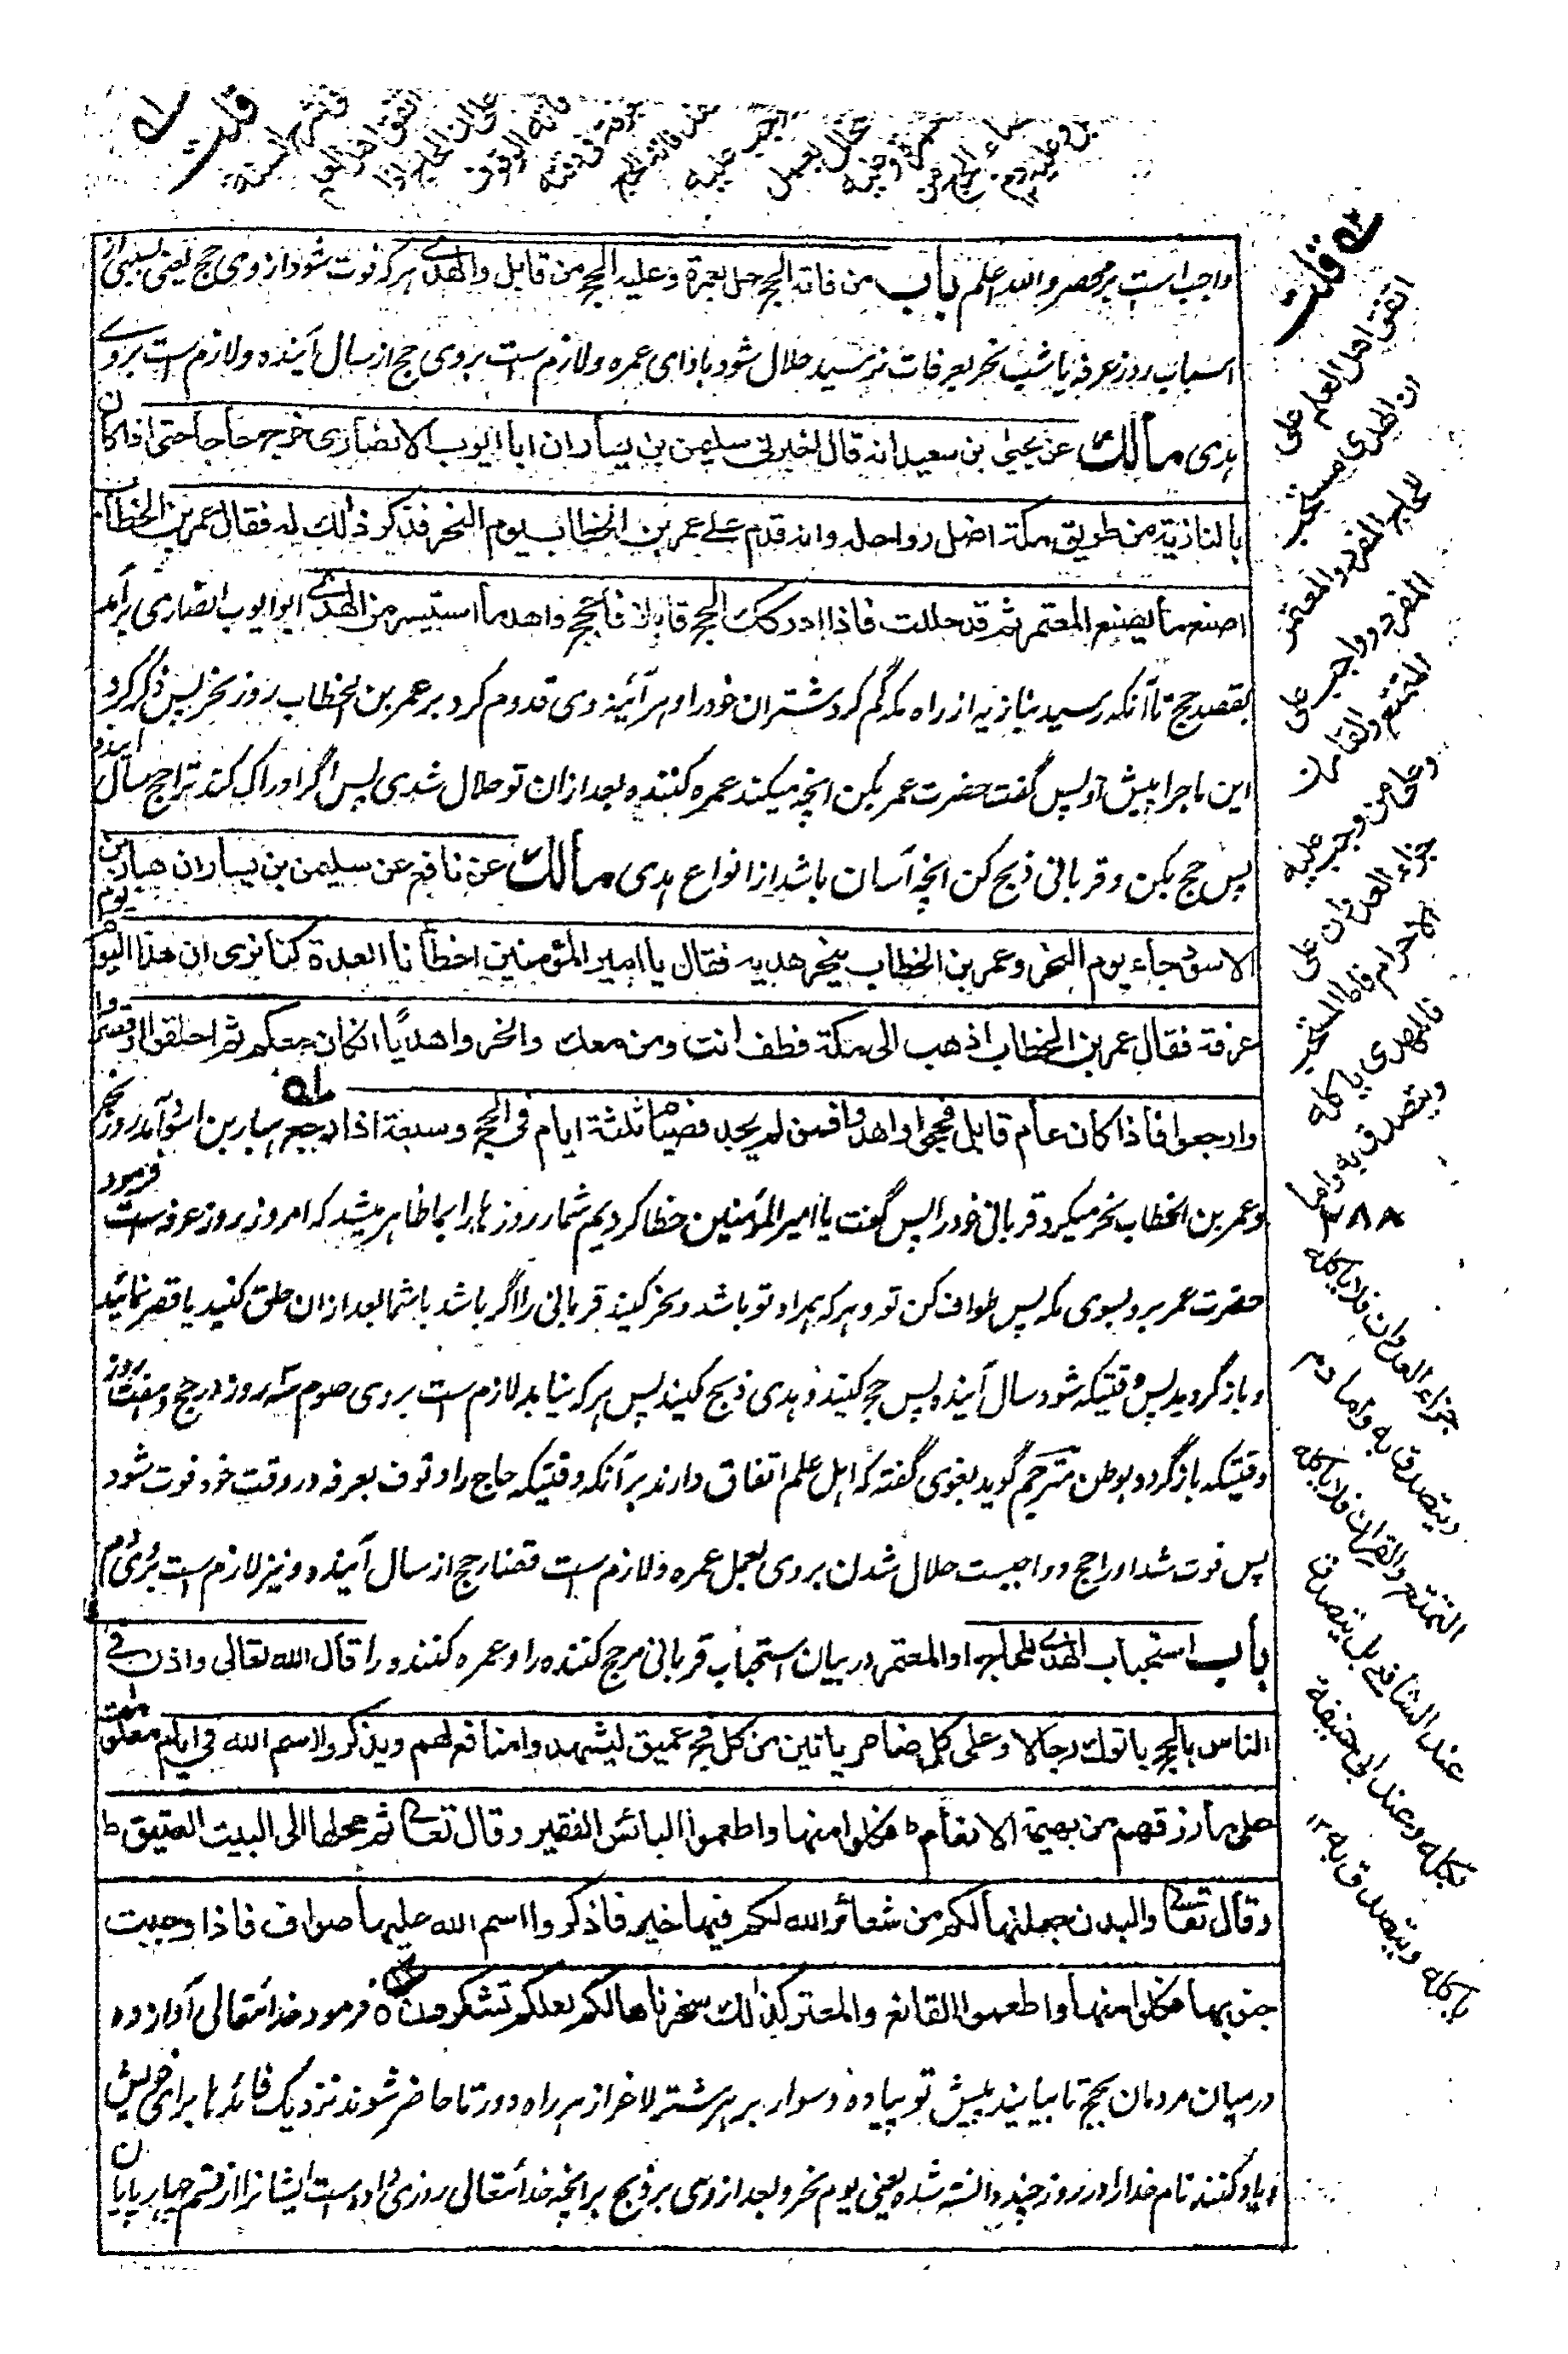 له قلت
قلت
واجب است بر محصر والله اعلم باب من فاته الحج حل بعمرة وعليه الحج من قابل والهدى هر كه فوت شود از وى حج يعنى بسببى از
اسباب روز عرفه يا شب نحر بعرفات نرسيد حلال شود بادای عمره ولازم ست بروی حج از سال آينده ولازم است بروے
هدى مالك عن يحيى بن سعيد انه قال اخبرنى سليمن بن يسار ان ابا ايوب الانصارى خرج حاجا حتى اذا كان
بالنازية من طريق مكة اضل رواحله وانه قدم على عمر بن الخطاب يوم النحر فذكر ذلك له فقال عمر بن الخطاب
اصنع ما يصنع المعتمر ثم قد حللت فاذا ادركك الحج قابلا فاحجج واهد ما استيسر من الهدے ابو ايوب انصارى برآمد
بقصد حج تا آنكه رسيد بنازيه از راه مكه گم كرد شتران خود را و هر آئينه وى قدوم كرد بر عمر بن الخطاب روز نحر پس ذكر كرد
اين ماجرا پيش او پس گفت حضرت عمر بكن انچه ميكند عمره كننده بعد ازان تو حلال شدى پس اگر ادراك كند ترا حج سال آينده
پس حج بكن و قربانى ذبح كن انچه آسان باشد از انواع هدى مالك عن نافع عن سليمن بن يسار ان هبار بن
الاسود جاء يوم النحر وعمر بن الخطاب ينحر هديه فقال يا امير المؤمنين اخطأنا العدة كنا نرى ان هذا اليوم يوم
عرفة فقال عمر بن الخطاب اذهب الى مكة فطف انت ومن معك وانحروا هديًا ان كان معكم ثم احلقوا او قصروا
وارجعوا فاذا كان عام قابل فحجوا واهدوا فمن لم يجد فصيام ثلثة ايام فى الحج وسبعة اذا رجع هبار بن اسود آمد روز نحر
وعمر بن الخطاب نحر ميكرد قربانى خود را پس گفت يا امير المؤمنين خطا كرديم شمار روز ها را بما ظاهر ميشد كه امروز روز عرفه ست فرمود
حضرت عمر برو بسوى مكه پس طواف كن تو و هر كه همراه تو باشد و نحر كنيد قربانى را اگر باشد با شما بعد ازان حلق كنيد يا قصر نمائيد
و باز گرديد پس وقتيكه شود سال آينده پس حج كنيد و هدى ذبح كنيد پس هر كه نيابد لازم ست بروى صوم سه روز در حج و هفت روز
وقتيكه باز گردد بوطن مترجم گويد بغوى گفته كه اهل علم اتفاق دارند برآنكه وقتيكه حاج را وقوف بعرفه در وقت خود فوت شود
پس فوت شد او را حج و واجبست حلال شدن بروى بعمل عمره ولازم ست قضاء حج از سال آينده و نيز لازم است بروى دم
باب استحباب الهدے للحاج او المعتمر در بيان استحباب قربانى مر حج كننده را و عمره كننده را قال الله تعالى واذن فے
الناس بالحج ياتوك رجالا وعلى كل ضامر ياتين من كل فج عميق ليشهدوا منافع لهم ويذكروا اسم الله فى ايام معلومت
على ما رزقهم من بهيمة الانعام ط فكلوا منها واطعموا البائس الفقير وقال تعالے ثم محلها الى البيت العتيق ط
وقال تعالے والبدن جعلنها لكم من شعائر الله لكم فيها خير فاذكروا اسم الله عليها صواف فاذا وجبت
جنوبها فكلوا منها واطعموا القانع والمعتر كذلك سخرناها لكم لعلكم تشكرون ه فرمود خدائتعالى آواز ده
درميان مردمان بحج تا بيايند پيش تو پياده و سوار بر هر شتر لاغر از هر راه دور تا حاضر شوند نزديك فائده ها براى خويش
و ياد كنند نام خدا را در روز چند دانسته شده يعنى يوم نحر و بعد از وى بر ذبح برانچه خدائتعالى روزى داده ست ايشانرا از قسم چهار پايان
له قلت
اتفق اهل العلم على
ان الهدى مستحب
للحاج المفرد والمعتمر
المفرد وواجب على
المتمتع والقارن
وعلى من وجب عليه
جزاء العدوان على
الاحرام فاما المستحب
فالمهدى ياكله
ويتصدق به واما
جزاء العدوان فلا ياكله
ويتصدق به واما دم
التمتع والقران فلا ياكله
عند الشافعے بل يتصدق
بكله وعند ابى حنيفة
ياكله ويتصدق به ١٢